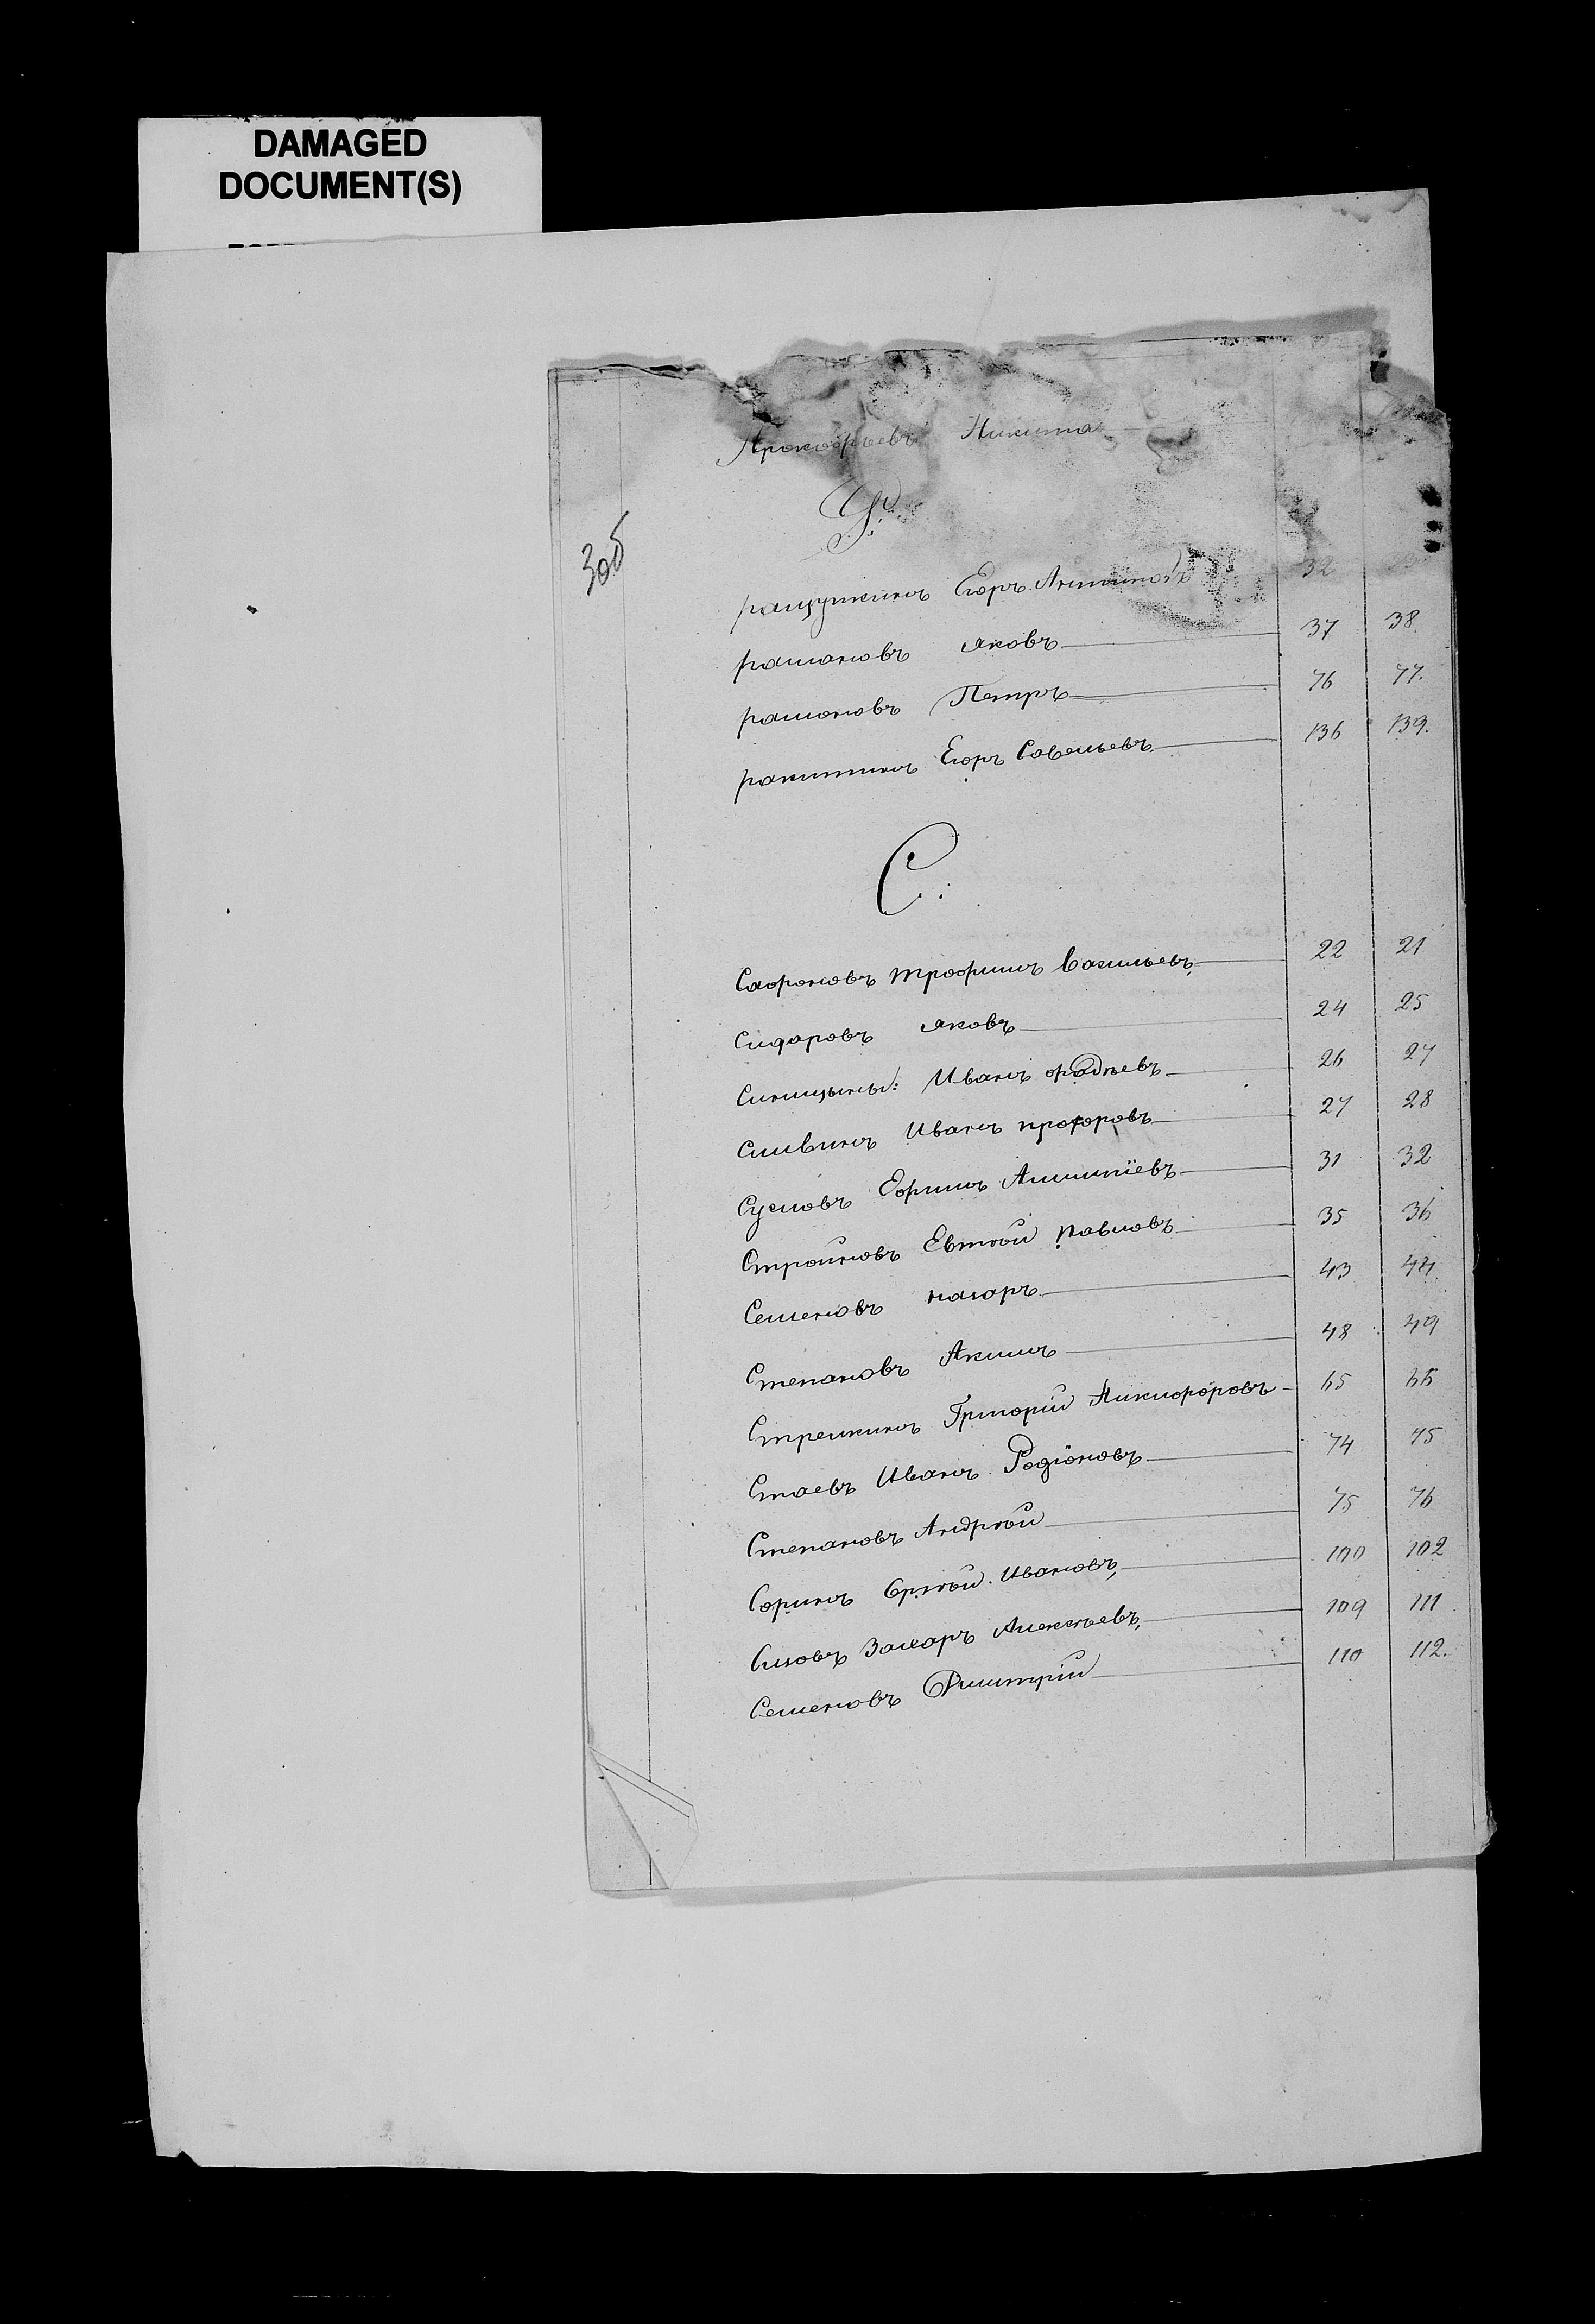 DAMAGED
DOCUMENT(S)
Прокофьевъ Никита
Р:
305
ращупкинъ Егоръ Антиповъ 32
романовъ яковъ 37 38
романовъ Петръ 76 77.
ракитинъ Егоръ Савельевъ 136 139.
С:
Сафоновъ трофимъ Васильевъ 22 21
Сидоровъ яковъ 24 25
Синицынъ: Иванъ фадѣевъ 26 27
Сливинъ Иванъ прохоровъ 27 28
Сусловъ Ефимъ 31 32
Стройковъ Евтѣй павловъ 35 36
Семеновъ назаръ 43 44
Степановъ Акимъ 48 49
Стрелкинъ Григорій Никифоровъ 65 66
Стаевъ Иванъ Родіоновъ 74 75
Степановъ Андрѣй 75 76
Соринъ Ивановъ 100 102
Сизовъ Захаръ Алексѣевъ 109 111
Семеновъ Дмитрій 110 112.